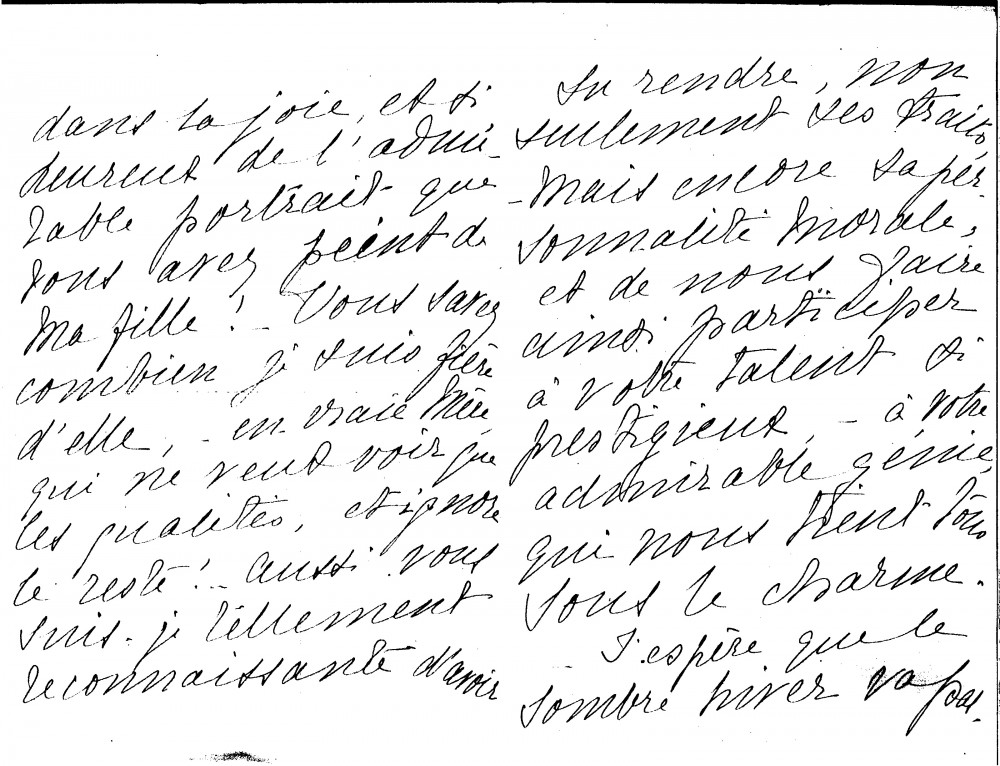 dans la joie, et si
heureux de l'admi-
rable portrait que
vous avez peint de
ma fille! - Vous savez
combien je suis fière
d'elle, - en vraie Mère
qui ne veut voir que
les qualités, et ignore
le reste! - aussi vous
suis-je tellement
reconnaissante d'avoir
su rendre, non
seulement ses traits,
- mais encore sa per-
sonnalité morale,
et de nous faire
ainsi participer
à votre talent si
prestigieux, - à votre
admirable génie,
qui nous tient tous
sous le charme.
J'espère que le
sombre hiver va pas-